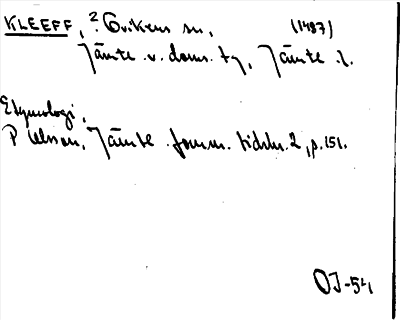 KLEEFF, ? Ovikens sn, (1487)
Jämtl. v. doms. tg, Jämtl. l.
Etymologi,
P Olsson, Jämtl. fornm. tidskr. 2, p. 151.
OJ-54